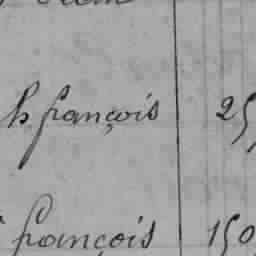 h françois 25
françois 150